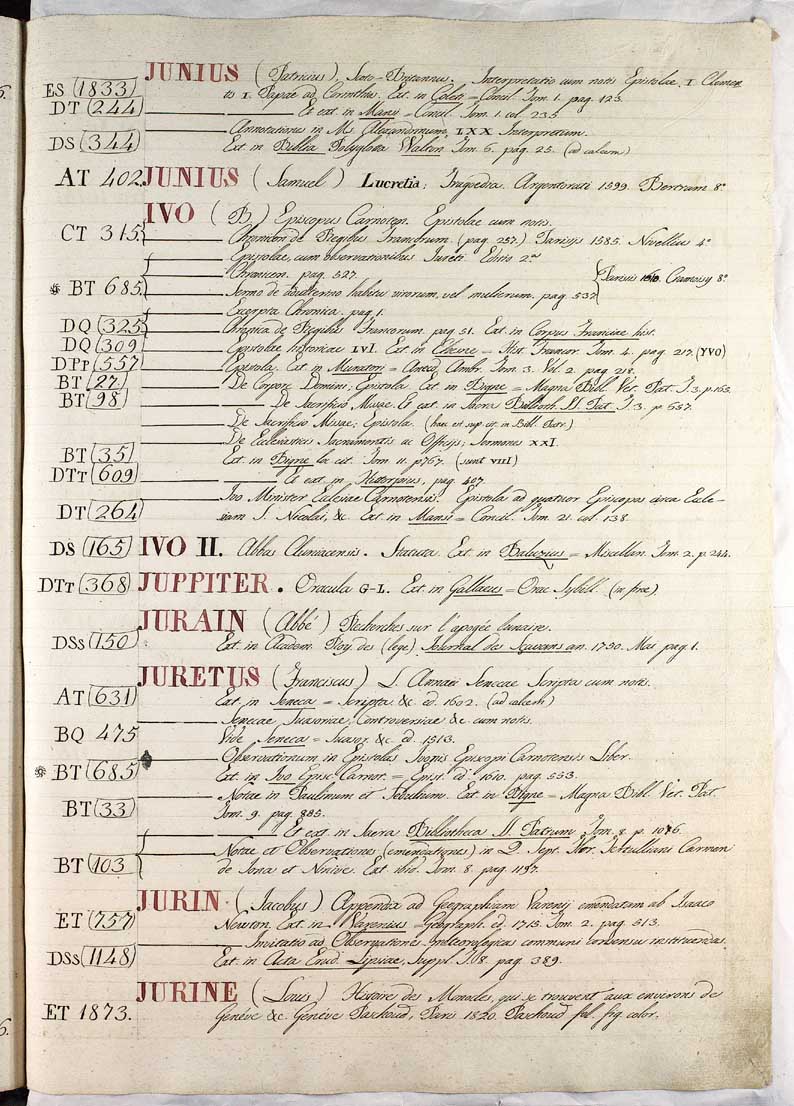 JUNIUS (Patricius), Scoto-Britannus. Interpretatio cum notis Epistolae I Clemen
ES (1833) tis I. Papae ad Corinthios. Ext. in Coleti = Concil. Tom. 1. pag. 123.
DT (244) Et ext. in Mansi = Concil. Tom. 1. col. 235
Annotationes in Ms. Alexandrinum LXX Interpretum.
DS (344) Ext. in Biblia Polyglotta Walton Tom. 6. pag. 25. (ad calcem)
AT 402. JUNIUS (Samuel) Lucretia; Tragoedia. Argentorati 1599. Bertrum 8°
IVO (B.) Episcopus Carnoten. Epistolae cum notis.
CT 315. Chronicon de Regibus Francorum. (pag. 257.) Parisijs 1585. Nivellius 4°
Epistolae, cum observationibus Jureti. Editio 2ª
Chronicon. pag. 527. Parisiis 1610. Cramoisy 8°
BT 685. Sermo de habitu virorum, vel mulierum. pag. 532
Excerpta Chronica. pag. 1.
DQ (325) Chronica de Regibus Francorum. pag. 51. Ext. in Corpus Franciae hist.
DQ (309) Epistolae historicae LVI. Ext. in Chesne = Hist. Francor. Tom. 4. pag. 217. (YVO)
DPp (557) Epistola. Ext. in Muratori = Anecd. Ambr. Tom. 3. Vol. 2. pag. 218.
BT (27) De Corpore Domini; Epistola. Ext. in Bigne = Magna Bibl. Vet. Pat. T. 3. p. 165.
BT (98) De Sacrificio Missae. Et ext. in Sacra Biblioth. SS. Pat. T. 3. p. 557.
De Sacrificio Missae; Epistola. (hau et sup. cit. in Bibl. Patr.)
De Ecclesiasticis Sacramentis ac Officijs; Sermones XXI.
BT (35) Ext. in Bigne loc. cit. Tom. 11. p. 767. (sunt VIII)
DTt (609) Et ext. in Hittorpius, pag. 407
Ivo Minister Eclesiae Carnotensis. Epistola ad quatuor Episcopos circa Ecle-
DT (264) siam S. Nicolai, &c. Ext. in Mansi = Concil. Tom. 21. col. 138.
DS (165) IVO II. Abbas Cluniacensis. Statuta. Ext. in Baluzius = Miscellan. Tom. 2. p. 244.
DTt (368) JUPPITER. Oracula G-L. Ext. in Gallaeus = Orac. Sybill. (in fine)
JURAIN (Abbé) Recherches sur l'apogée lunaire.
DSs (150) Ext. in Academ. Roy. des (lege) Journal des Sçavans an. 1730. Mas pag. 1.
JURETUS (Franciscus) L. Annaei Senecae Scripta cum notis.
AT (631) Ext. in Seneca = Scripta &c. ed. 1602. (ad calcem)
Senecae Suasoriae, Controversiae &c. cum notis.
BQ 475 Vide Seneca = Suasor. &c. ed. 1513.
Observationum in Epistolis Ivonis Episcopi Carnotensis Liber.
BT (685) Ext. in Ivo Episc. Carnot. = Epist. ed. 1610. pag. 553.
Notae in Paulinum et Sedulium. Ext. in Bigne = Magna Bibl. Vet. Pat.
BT (33) Tom. 9. pag. 885.
Et ext. in Sacra Bibliotheca SS. Patrum Tom. 8. p. 1076.
Notae et Observationes (emendationes) in Q. Sept. Flor. Tertulliani Carmen
BT (103) de Iona et Ninive. Ext. ibid. Tom. 8. pag. 1187.
JURIN (Jacobus) Appendix ad Geographiam Varenij emendatam ab Isaaco
ET (757) Newton. Ext. in Varenius = Geograph. ed. 1715. Tom. 2. pag. 513.
Invitatio ad Observationes Meteorologicas communi consensu instituendas.
DSs (1148) Ext. in Acta Erud. Lipsiae, Suppl. T. 8. pag. 389.
JURINE (Louis) Histoire des Monocles, qui se trouvent aux environs de
ET 1873. Genève &c. Genève Paschoud, Paris 1820. Paschoud fol. fig. color.